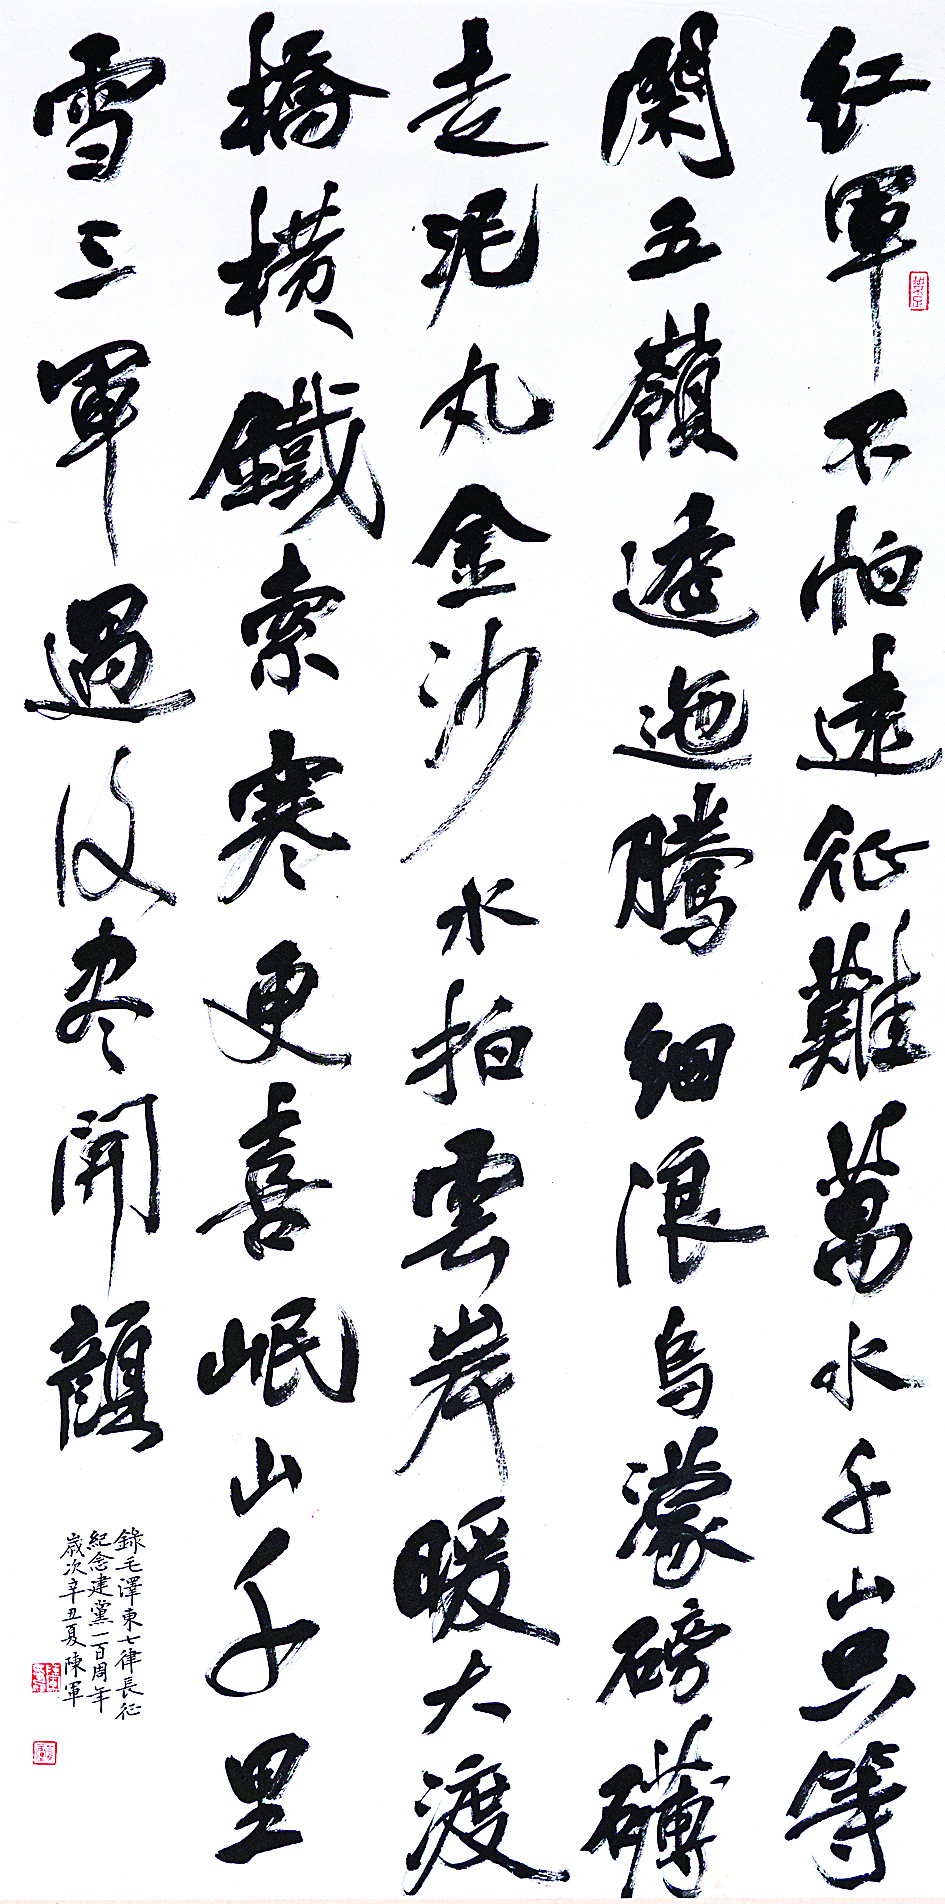 紅軍不怕遠征難萬水千山只等
閑五嶺逶迤騰細浪烏濛磅礴
走泥丸金沙水拍雲岸暖大渡
橋橫鐵索寒更喜岷山千里
雪三軍過后尽開顏
錄毛澤東七律長征
紀念建黨一百周年
歲次辛丑夏陳軍